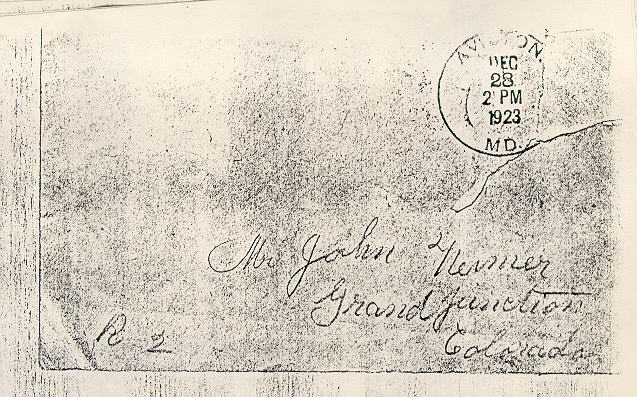 AVILTON.
DEC
28
2 PM
1923
MD.
Mr John
Grand Junction
Colorado
R 2